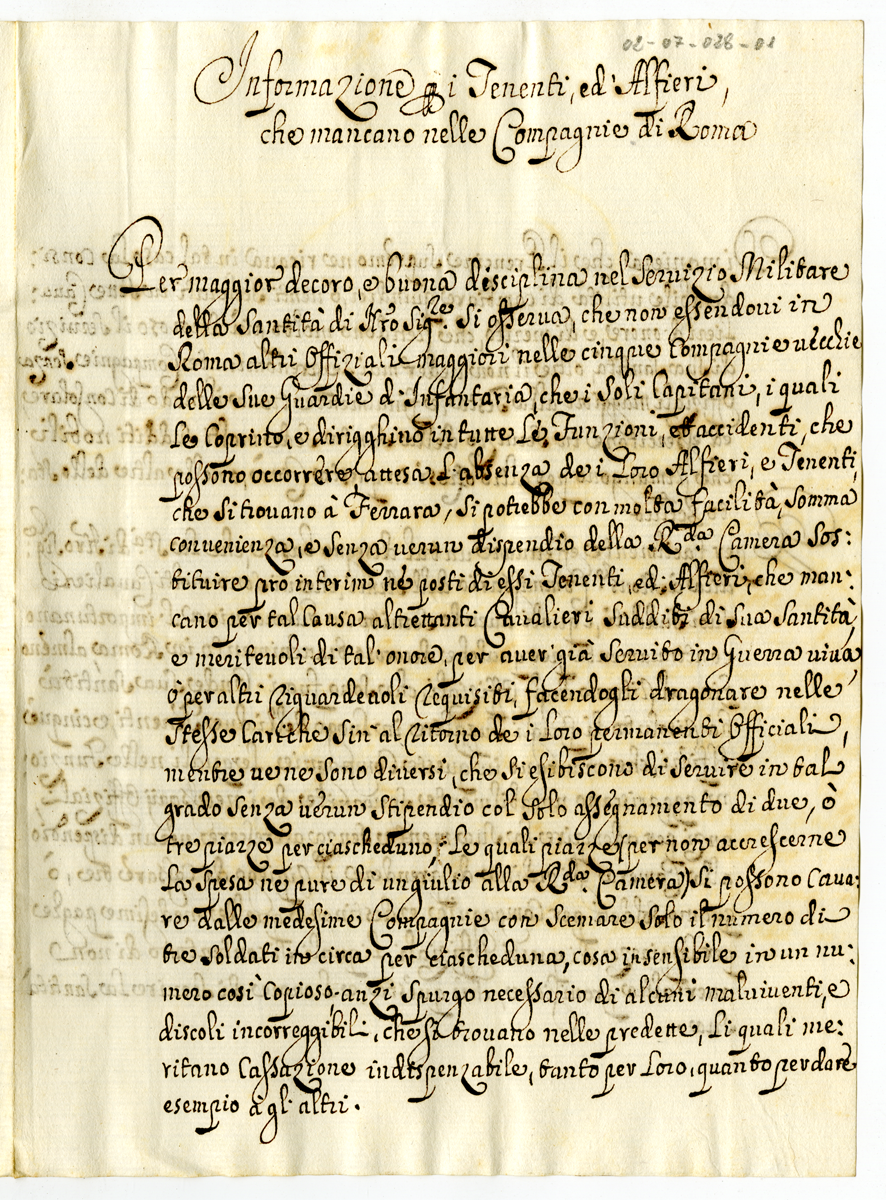 02-07-028-01
Informazione p i Tenenti, ed' Alfieri,
che mancano nelle Compagnie di Roma
Per maggior decoro, e buona disciplina nel Servizio Militare
della Santità di Nro Sig.re Si osserva, che non essendoui in
Roma altri Offiziali maggiori nelle cinque Compagnie uecchie
delle sue Guardie d'Infantaria, che i Soli Capitani, i quali
Le Coprino, e dirigghino in tutte Le Funzioni, et accidenti, che
possono occorrere, attesa L'absenza de i Loro Alfieri, e Tenenti,
che si trouano à Ferrara, Si potrebbe con molta facilità, Somma
conuenienza, e Senza uerun dispendio della R.da Camera Sos:
tituire pro interim ne posti di essi Tenenti, ed' Alfieri, che man:
cano per tal Causa altrettanti Caualieri Sudditi di Sua Santità,
e meriteuoli di tal' onore, per auer' già Seruito in Guerra uiua,
ò per altri riguardeuoli requisiti, facendogli dragonare nelle
Stesse Cariche Sin' al ritorno de i Loro permanenti Officiali,
mentre ue ne Sono diuersi, che Si esibiscono di Seruire in tal
grado Senza uerun Stipendio col Solo assegnamento di due, ò
tre piazze per ciascheduno, Le quali piazze (per non accrescerne
La Spesa ne pure di un giulio alla R.da Camera) Si possono Caua:
re dalle medesime Compagnie con Scemare Solo il numero di
tre Soldati in circa per ciascheduna, cosa insensibile in un nu:
mero così Copioso, anzi Spurgo necessario di alcuni maluiuenti, e
discoli incorreggibili, che Si trouano nelle predette, Li quali me:
ritano Cassazione indispenzabile, tanto per Loro, quanto per dare
esempio à gl' altri.